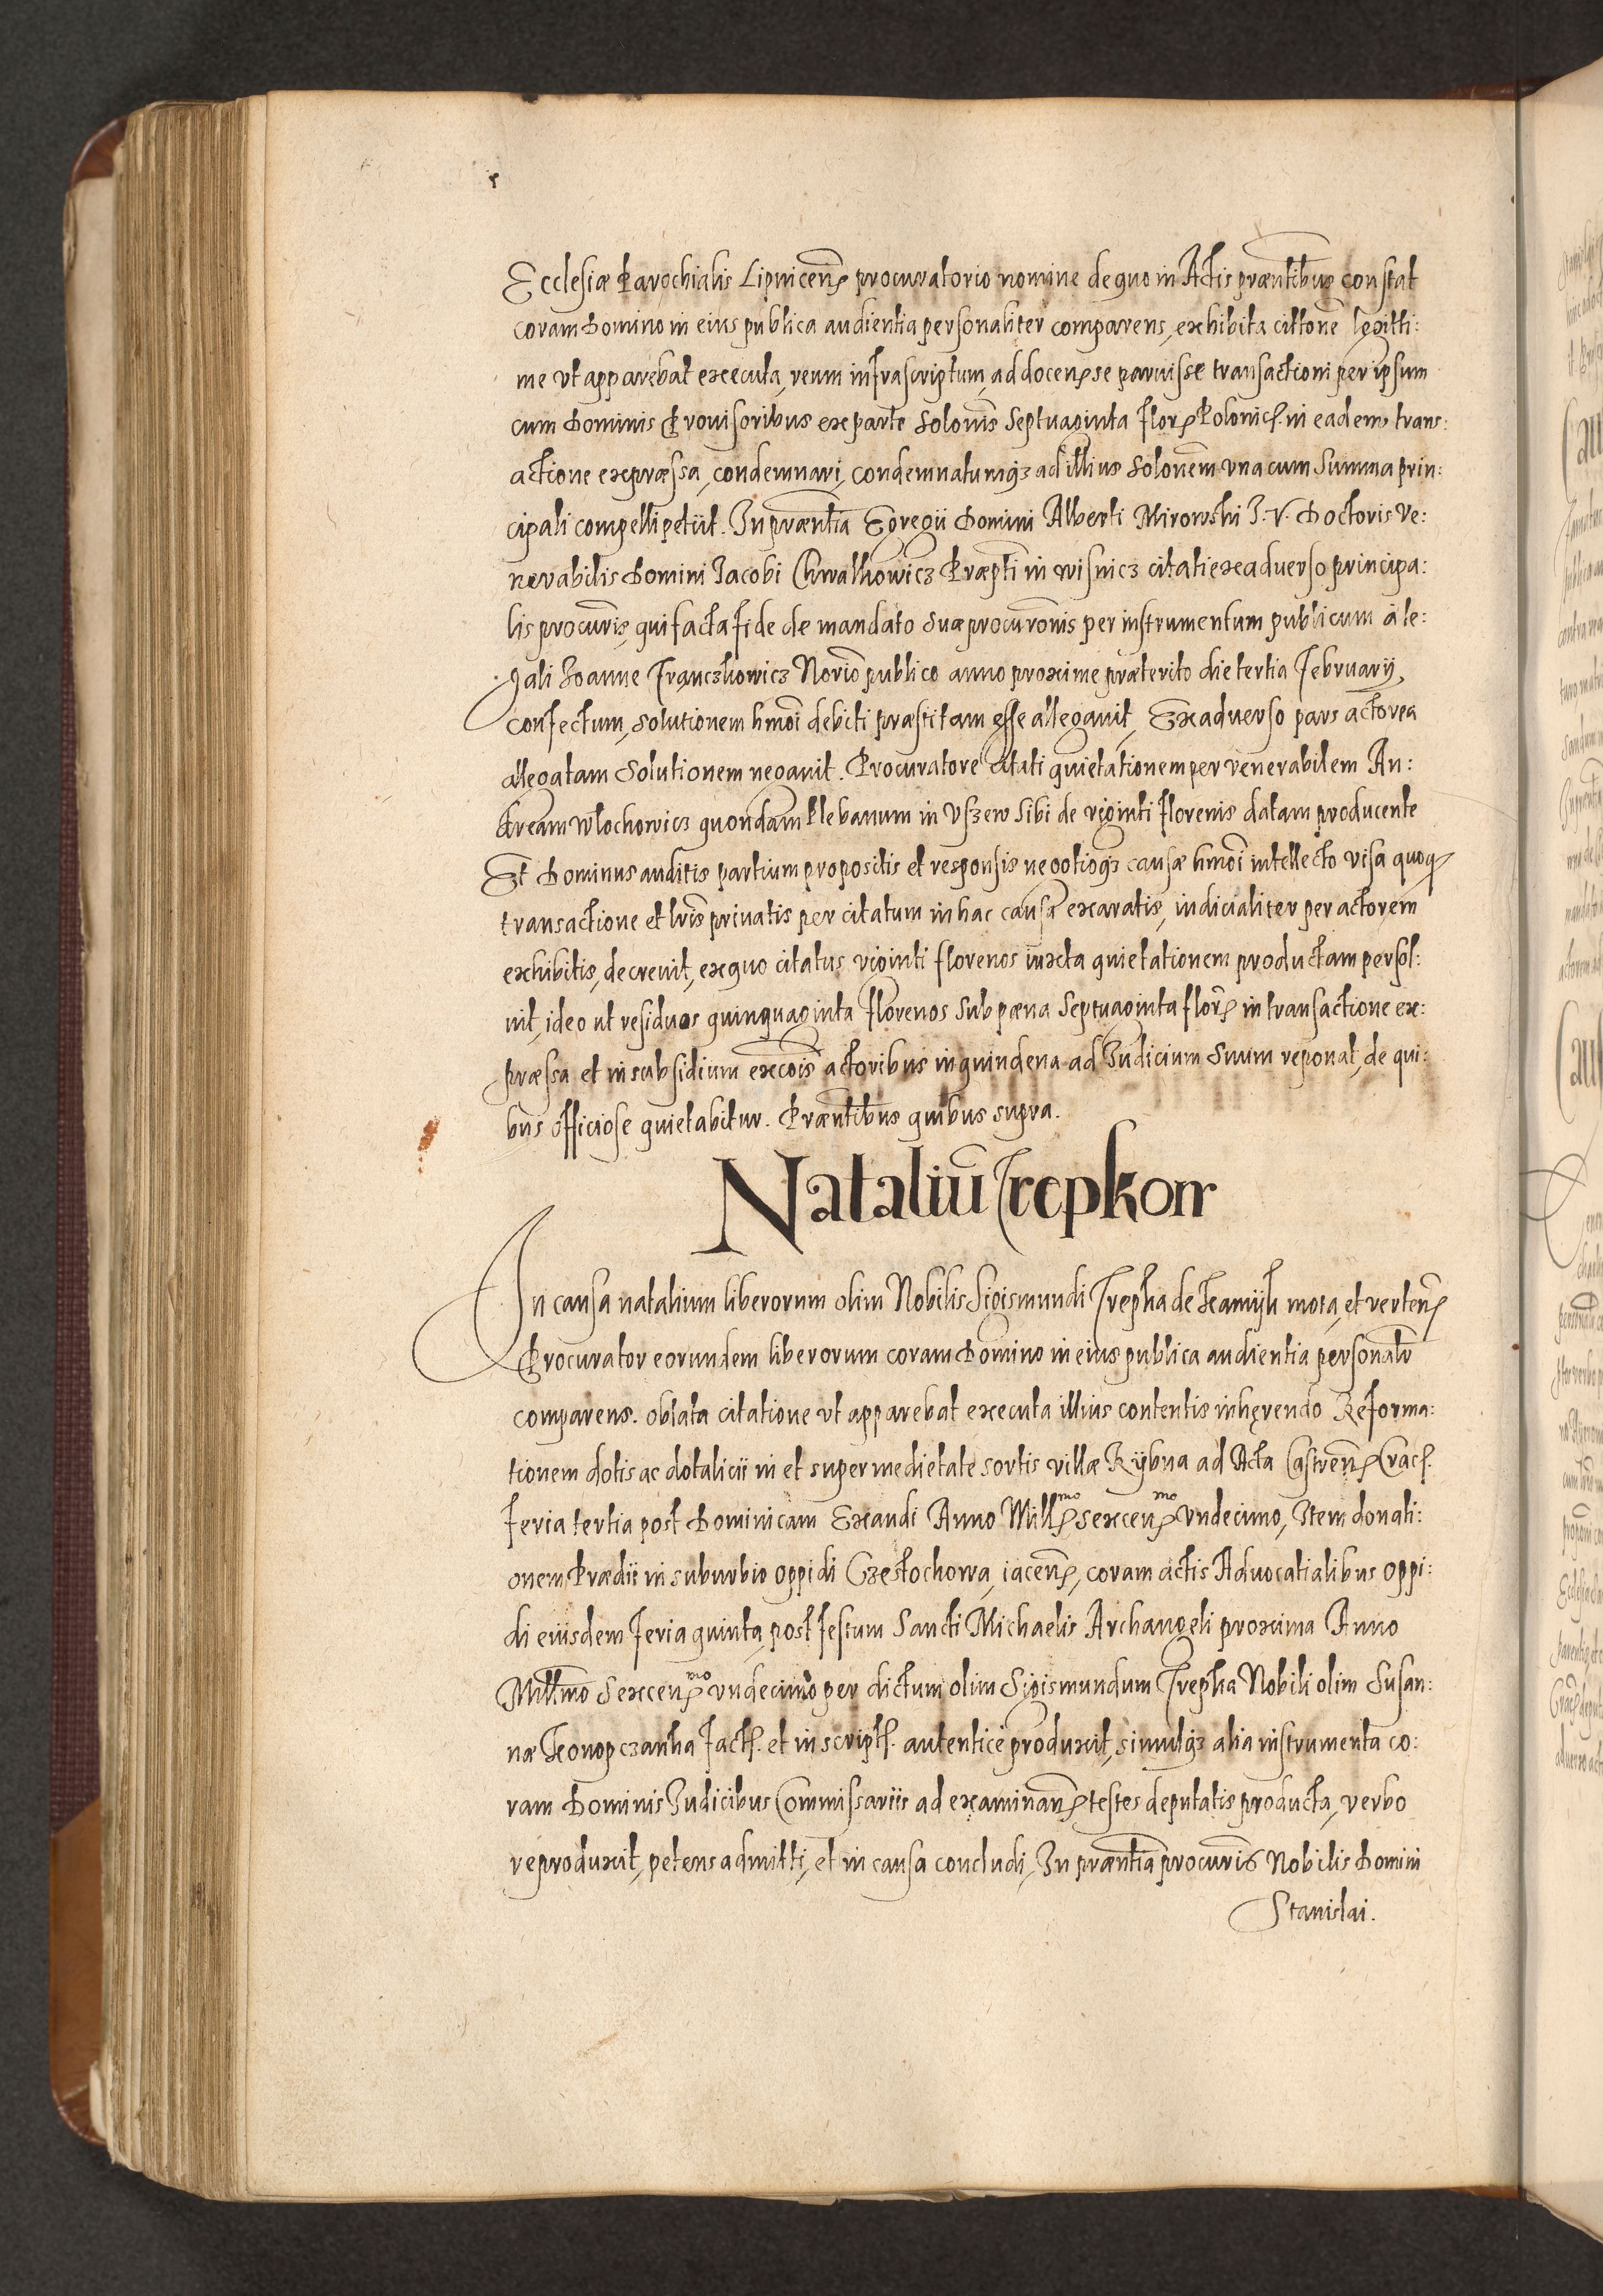 Ecclesiæ Parochialis Lipnicen̄ procuratorio nomine de quo in Actis præntibus constat
coram Domino in eius publica audientia personaliter comparens, exhibita cittone legitti:
me vt apparebat executa, reum infrascriptum, ad docen̄ se paruisse transactioni per ipsum
cum Dominis Prouisoribus ex parte Solonis Septuaginta flor̄ Polonic̄. in eadem trans:
actione expræssa, condemnari, condemnatumq₃ ad illius Solonem vna cum Summa prin:
cipali compelli petiit. In præntia Egregii Domini Alberti Mirowski I. V. Doctoris Ve:
nerabilis Domini Iacobi Chwalkowicz Præpti in wisnicz citati ex aduerso principa:
lis procuris, qui facta fide de mandato suæ procuronis per instrumentum publicum á le:
gali Ioanne Franczkowicz Norio publico anno proxime præterito die tertia February,
confectum, solutionem hmoi debiti præstitam esse allegauit, Ex aduerso pars actorea
allegatam Solutionem negauit. Procuratore citati quietationem per venerabilem An:
dream Wlochowicz quondam Plebanum in Uszew Sibi de viginti florenis datam producente
Et Dominus auditis partium propositis et responsis negotioq₃ causæ hmoi intellecto visa quoq₃
transactione et lris priuatis per citatum in hac causa exaratis, iudicialiter per actorem
exhibitis, decreuit, ex quo citatus viginti florenos iuxta quietationem productam persol:
uit, ideo ut residuos quinquaginta florenos sub pæna Septuaginta flor̄ in transactione ex:
præssa et in subsidium excois actoribus in quindena ad Iudicium Suum reponat, de qui:
bus officiose quietabitur. Præntibus quibus supra.
Nataliū Trepkorr
In causa natalium liberorum olim Nobilis Sigismundi Trepka de Kamÿk mota, et verten̄
Procurator eorundem liberorum coram Domino in eius publica audientia personalr
comparens. oblata citatione vt apparebat executa illius contentis inhęrendo Reforma:
tionem dotis ac dotalicii in et super medietate sortis villæ Rÿbna ad Acta Castren̄ Crac̄.
feria tertia post Dominicam Exaudi Anno Mill̄ᵐᵒ sexcen̄ᵐᵒ vndecimo, Item donati:
onem Prædii in suburbio oppidi Częstochowa, iacen̄, coram actis Aduocatialibus oppi:
di eiusdem feria quinta post festum Sancti Michaelis Archangeli proxima Anno
Millmo Sexcen̄ᵐᵒ vndecimo per dictum olim Sigismundum Trepka Nobili olim Susan:
næ Konopczanka fact̄. et inscript̄. autentice produxit, simulq₃ alia instrumenta co:
ram Dominis Iudicibus Commissariis ad examinan̄ testes deputatis producta, verbo
reproduxit, petens admitti, et in causa concludi, In præntia procuris Nobilis Domini
Stanislai.